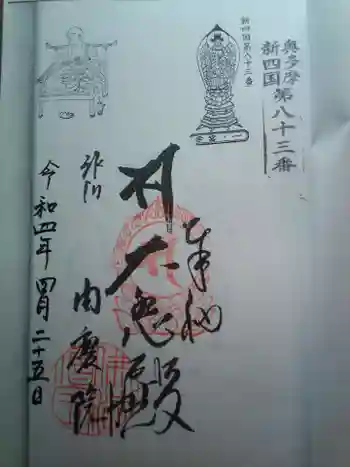 奥多摩
新四国第八十三番
新四国第八十三番
奉拝
大悲殿
氷川
由慶院
令和四年四月二十五日